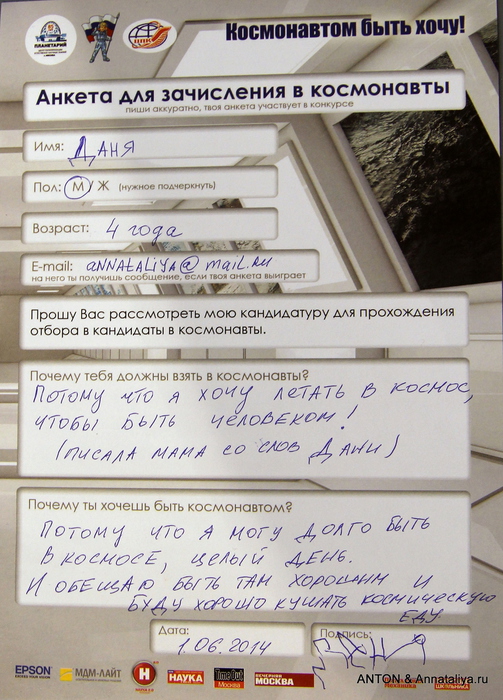 ПЛАНЕТАРИЙ
ЦПК
Космонавтом быть хочу!
Анкета для зачисления в космонавты
пиши аккуратно, твоя анкета участвует в конкурсе
Имя: Даня
Пол: М / Ж (нужное подчеркнуть)
Возраст: 4 года
E-mail: annataliya@mail.ru
на него ты получишь сообщение, если твоя анкета выиграет
Прошу Вас рассмотреть мою кандидатуру для прохождения
отбора в кандидаты в космонавты.
Почему тебя должны взять в космонавты?
Потому что я хочу летать в космос,
чтобы быть человеком!
(писала мама со слов Дани)
Почему ты хочешь быть космонавтом?
Потому что я могу долго быть
в космосе, целый день.
И обещаю быть там хорошим и
буду хорошо кушать космическую
еду
Дата: 1.06.2014
Подпись:
EPSON
МДМ-ЛАЙТ
Н
НАУКА
TimeOut
Москва
ВЕЧЕРНЯЯ
МОСКВА
Механика
ШКОЛЬНИКА
ANTON & Annataliya.ru